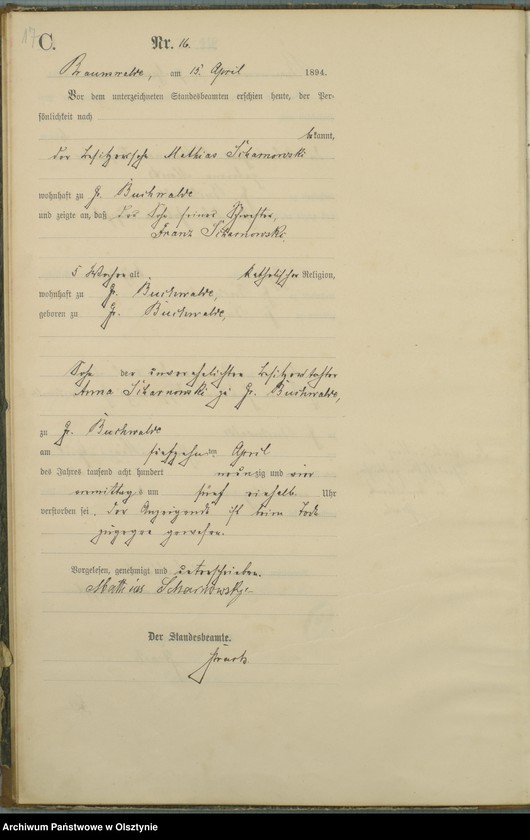 17
C.
Nr. 16.
Braunswalde, am 15. April 1894.
Vor dem unterzeichneten Standesbeamten erschien heute, der Per-
sönlichkeit nach
bekannt,
der Besitzerssohn Mathias Scharnowski
wohnhaft zu Gr. Buchwalde
und zeigte an, daß der Sohn seiner Schwester,
Franz Scharnowski,
5 Wochen alt, katholischer Religion,
wohnhaft zu Gr. Buchwalde,
geboren zu Gr. Buchwalde,
Sohn der unverehelichten Besitzertochter
Anna Scharnowski zu Gr. Buchwalde,
zu Gr. Buchwalde
am fünfzehnten April
des Jahres tausend acht hundert neunzig und vier
vormittags um fünf einhalb Uhr
verstorben sei. Der Anzeigende ist beim Tode
zugegen gewesen.
Vorgelesen, genehmigt und unterschrieben.
Mathias Scharnowski
Der Standesbeamte.
Archiwum Państwowe w Olsztynie